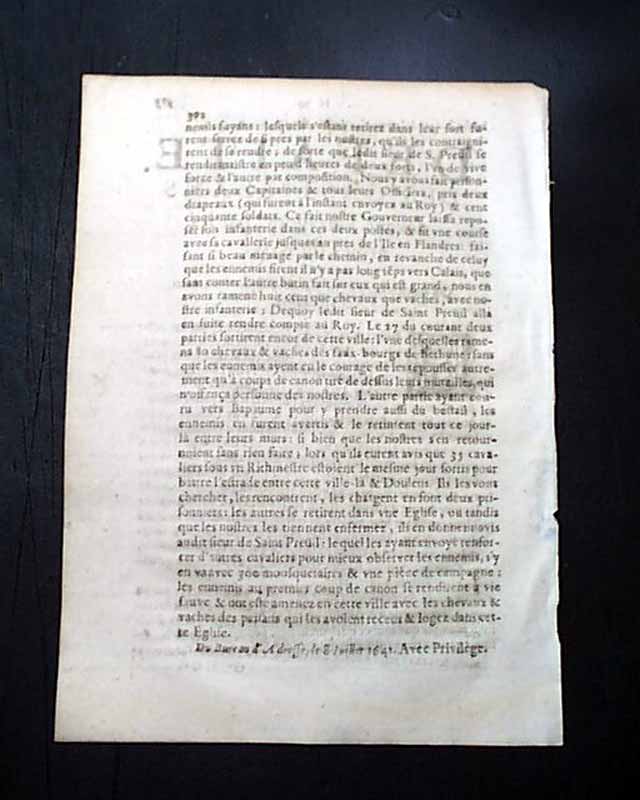 392
nemis fuyans: lesquels s'estans retirez dans leur fort fu-
rent serrez de si pres par les nostres, qu'ils les contraigni-
rent de se rendre; de sorte que ledit sieur de S. Preuil se
rendit maistre en peu d'heures de deux forts, l'vn de vive
force & l'autre par composition. Nous y avons fait prison-
niers deux Capitaines & tous leurs Officiers, pris deux
drapeaux (qui furent à l'instant envoyez au Roy) & cent
cinquante soldats. Ce fait nostre Gouverneur laissa repo-
ser son infanterie dans ces deux postes, & fit vne course
avec sa cavallerie jusques au pres de l'Ile en Flandres: fai-
sant si beau mesnage par le chemin, en revanche de celuy
que les ennemis firent il n'y a pas long têps vers Calais, que
sans conter l'autre butin fait sur eux qui est grand, nous en
avons ramené huit cens que chevaux que vaches, avec no-
stre infanterie: Dequoy ledit sieur de Saint Preuil alla
en suite rendre compte au Roy. Le 27 du courant deux
parties sortirent encor de cette ville: l'vne desquelles rame-
na 80 chevaux & vaches des faux-bourgs de Bethune: sans
que les ennemis ayent eu le courage de les repousser autre-
ment qu'à coups de canon tiré de dessus leurs murailles, qui
n'offença personne des nostres. L'autre partie ayant cou-
ru vers Bapaume pour y prendre aussi du bestail, les
ennemis en furent avertis & le retinrent tout ce jour-
là entre leurs murs: si bien que les nostres s'en retour-
noient sans rien faire; lors qu'ils eurent avis que 35 cava-
liers sous vn Richmestre estoient le mesme jour sortis pour
battre l'estrade entre cette ville-là & Doulens. Ils les vont
chercher, les rencontrent, les chargent en font deux pri-
sonniers: les autres se retirent dans vne Eglise, où tandis
que les nostres les tiennent enfermez, ils en donnent avis
audit sieur de Saint Preuil: lequel les ayant envoyé renfor-
cer d'autres cavaliers pour mieux observer les ennemis, s'y
en va avec 300 mousquetaires & vne piéce de campagne:
les ennemis au premier coup de canon se rendirent à vie
sauve & ont esté amenez en cette ville avec les chevaux &
vaches des païsans qui les avoient receus & logez dans cet-
te Eglise.
Du Bureau d'Adresse, le 8 Iuillet 1641. Avec Privilége.